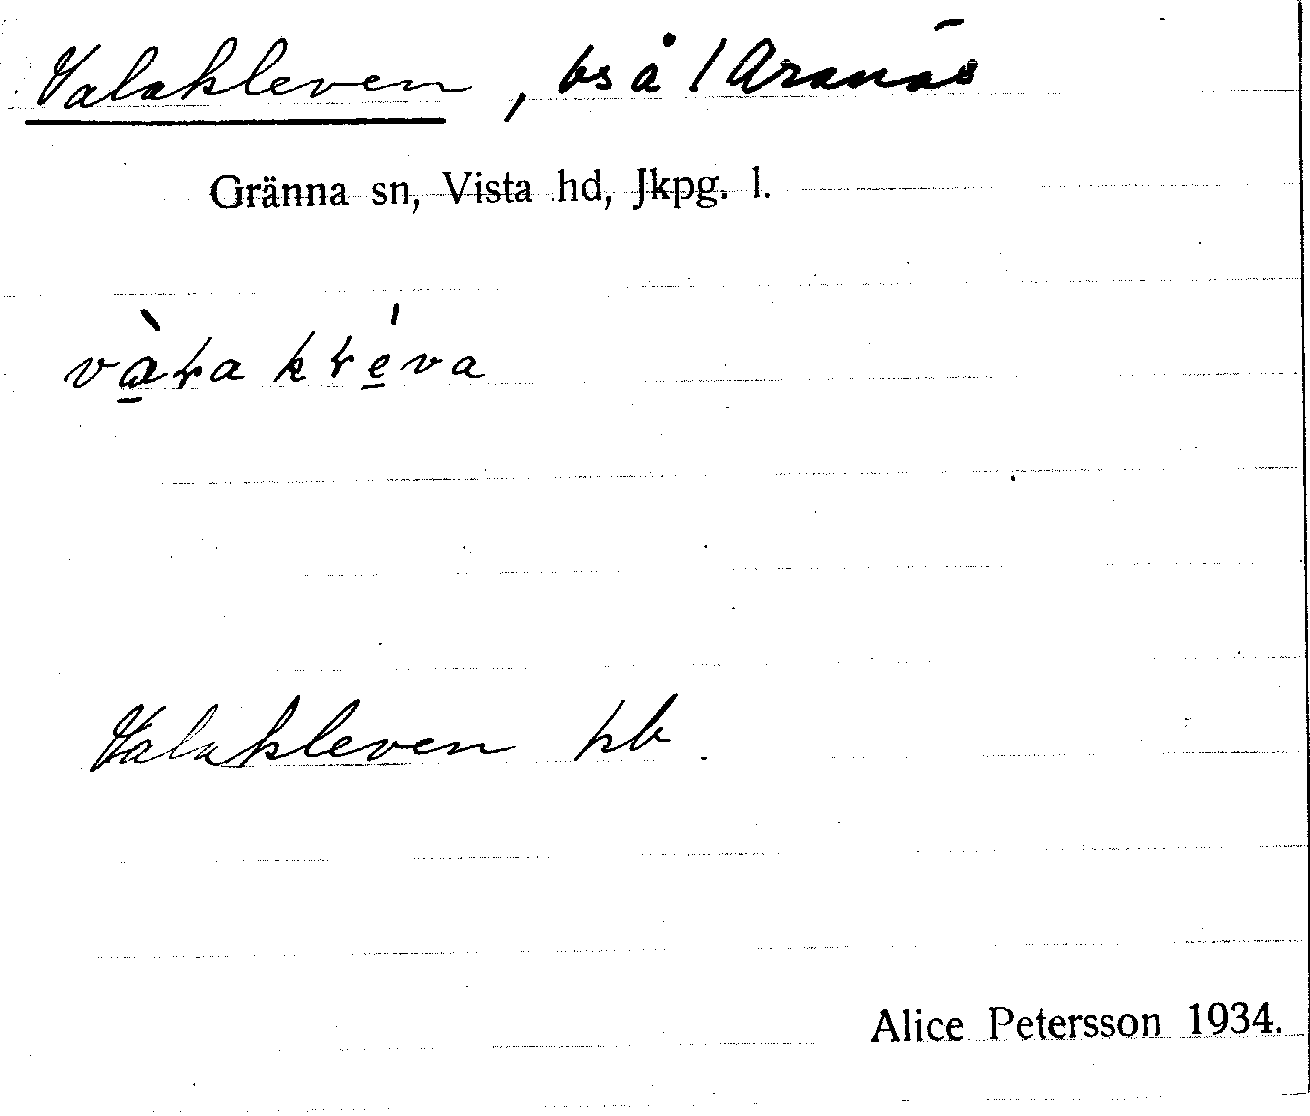 Valakleven, bs å 1 Aranäs
Gränna sn, Vista hd, Jkpg. l.
Valakleven hb.
Alice Petersson 1934.